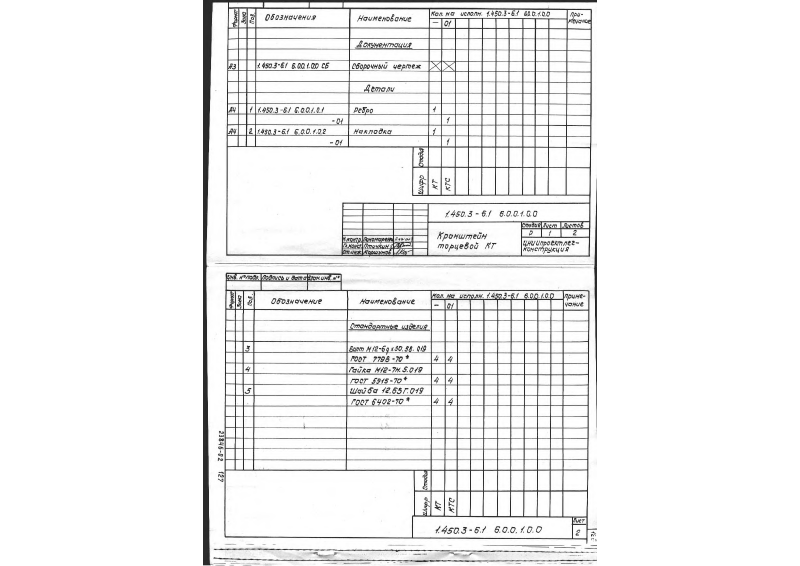 Формат Зона Поз. Обозначения Наименование Кол. на исполн. 1.450.3-6.1 6.0.0.1.0.0 Примечание
— 01
Документация
А3 1.450.3-6.1 6.0.0.1.0.0 СБ Сборочный чертеж X X
Детали
А4 1 1.450.3-6.1 6.0.0.1.0.1 Ребро 1
-01 1
А4 2 1.450.3-6.1 6.0.0.1.0.2 Накладка 1
-01 1
Стадия
Шифр КТ КТС
1.450.3-6.1 6.0.0.1.0.0
Кронштейн торцевой КТ
Стадия Лист Листов
Р 1 2
ЦНИИпроектлег-
конструкция
Инв. № подл. Подпись и дата Взам.инв. №
Формат Зона Поз. Обозначение Наименование Кол. на исполн. 1.450.3-6.1 6.0.0.1.0.0 Примечание
— 01
Стандартные изделия
3 Болт М12-6gx30.58.019
ГОСТ 7798-70* 4 4
4 Гайка М12-7Н.5.019
ГОСТ 5915-70* 4 4
5 Шайба 12.65Г.019
ГОСТ 6402-70* 4 4
23845-02 127
Стадия
Шифр КТ КТС
1.450.3-6.1 6.0.0.1.0.0
Лист
2